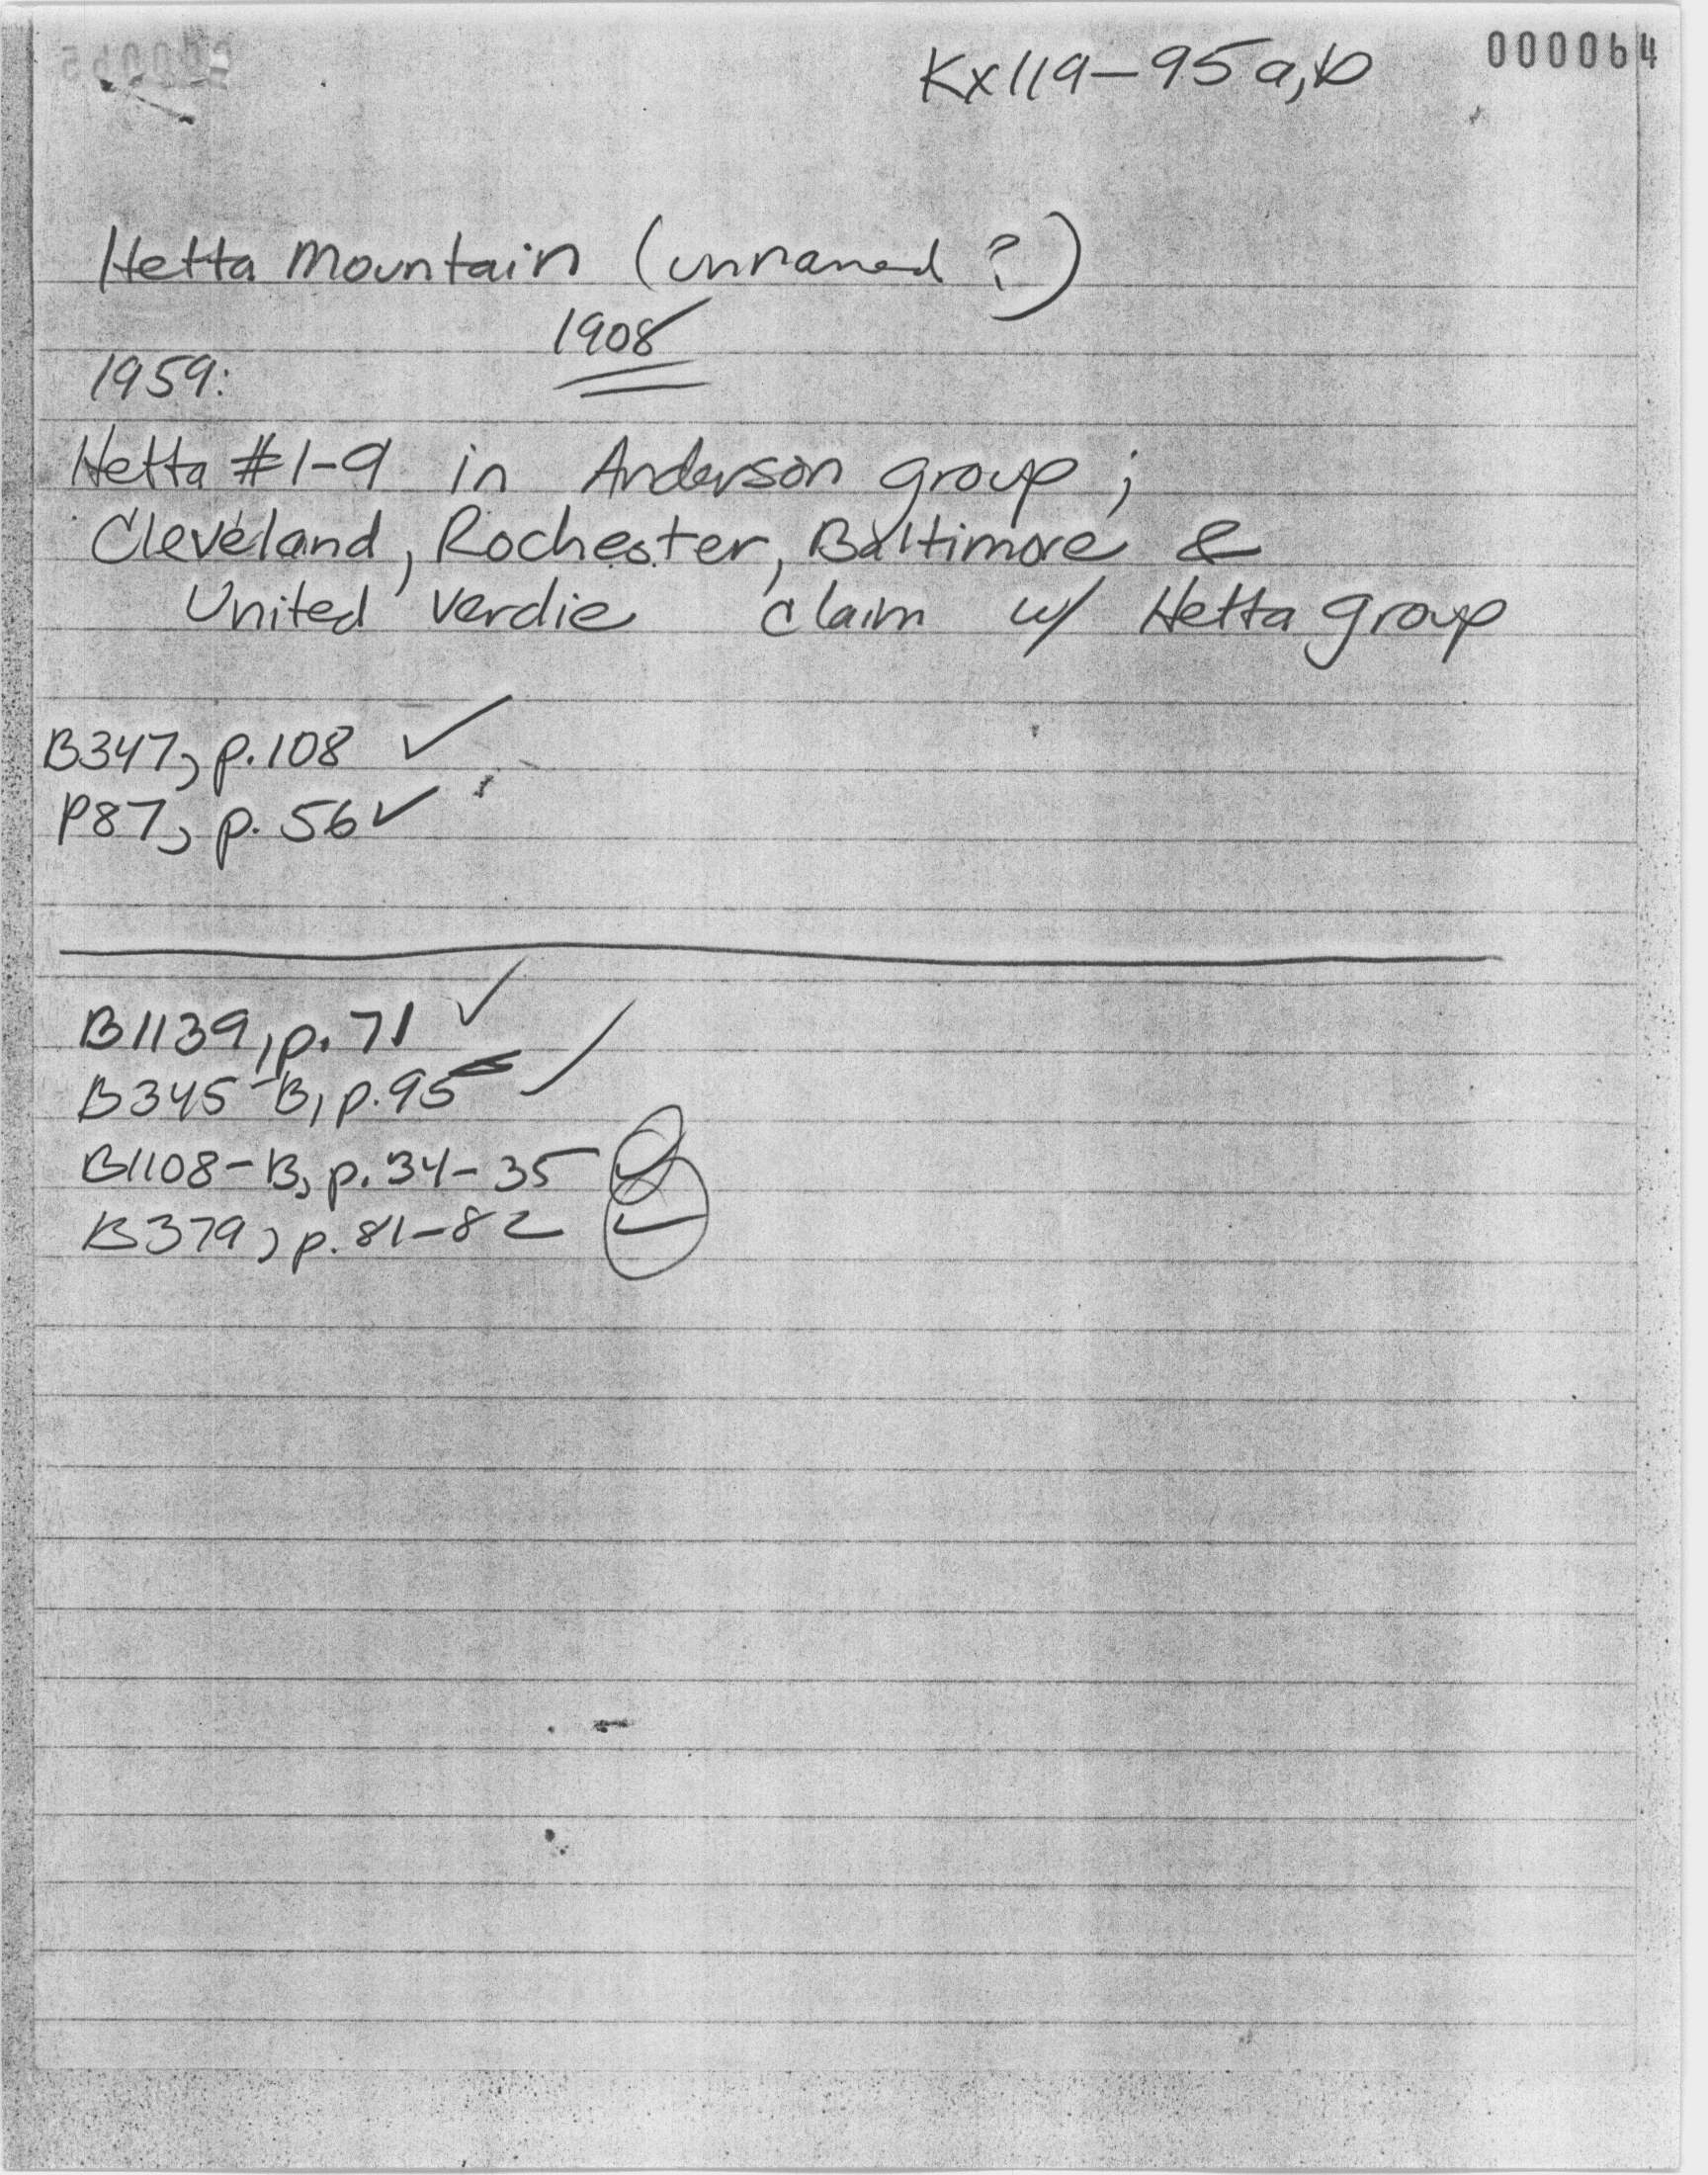 Kx119-95a,b
000064
Hetta Mountain (unnamed ?)
1908
1959:
Hetta #1-9 in Anderson group;
Cleveland, Rochester, Baltimore &
United Verdie claim w/ Hetta group
B347, p.108 ✓
P87, p. 56 ✓
B1139, p. 71 ✓
B345-B, p.95 ✓
B1108-B, p. 34-35 ✓
B379, p. 81-82 ✓